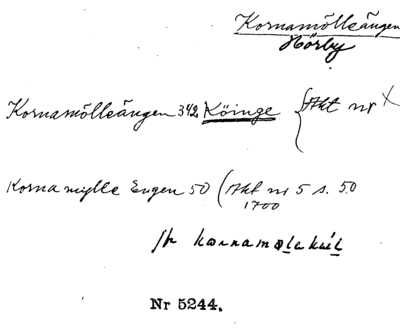 Kornamölleängen
Hörby
Kornamölleängen 342 Köinge { Akt nr X
Korna mylle Engen 50 (Akt nr 5 s. 50
1700
Nr 5244.